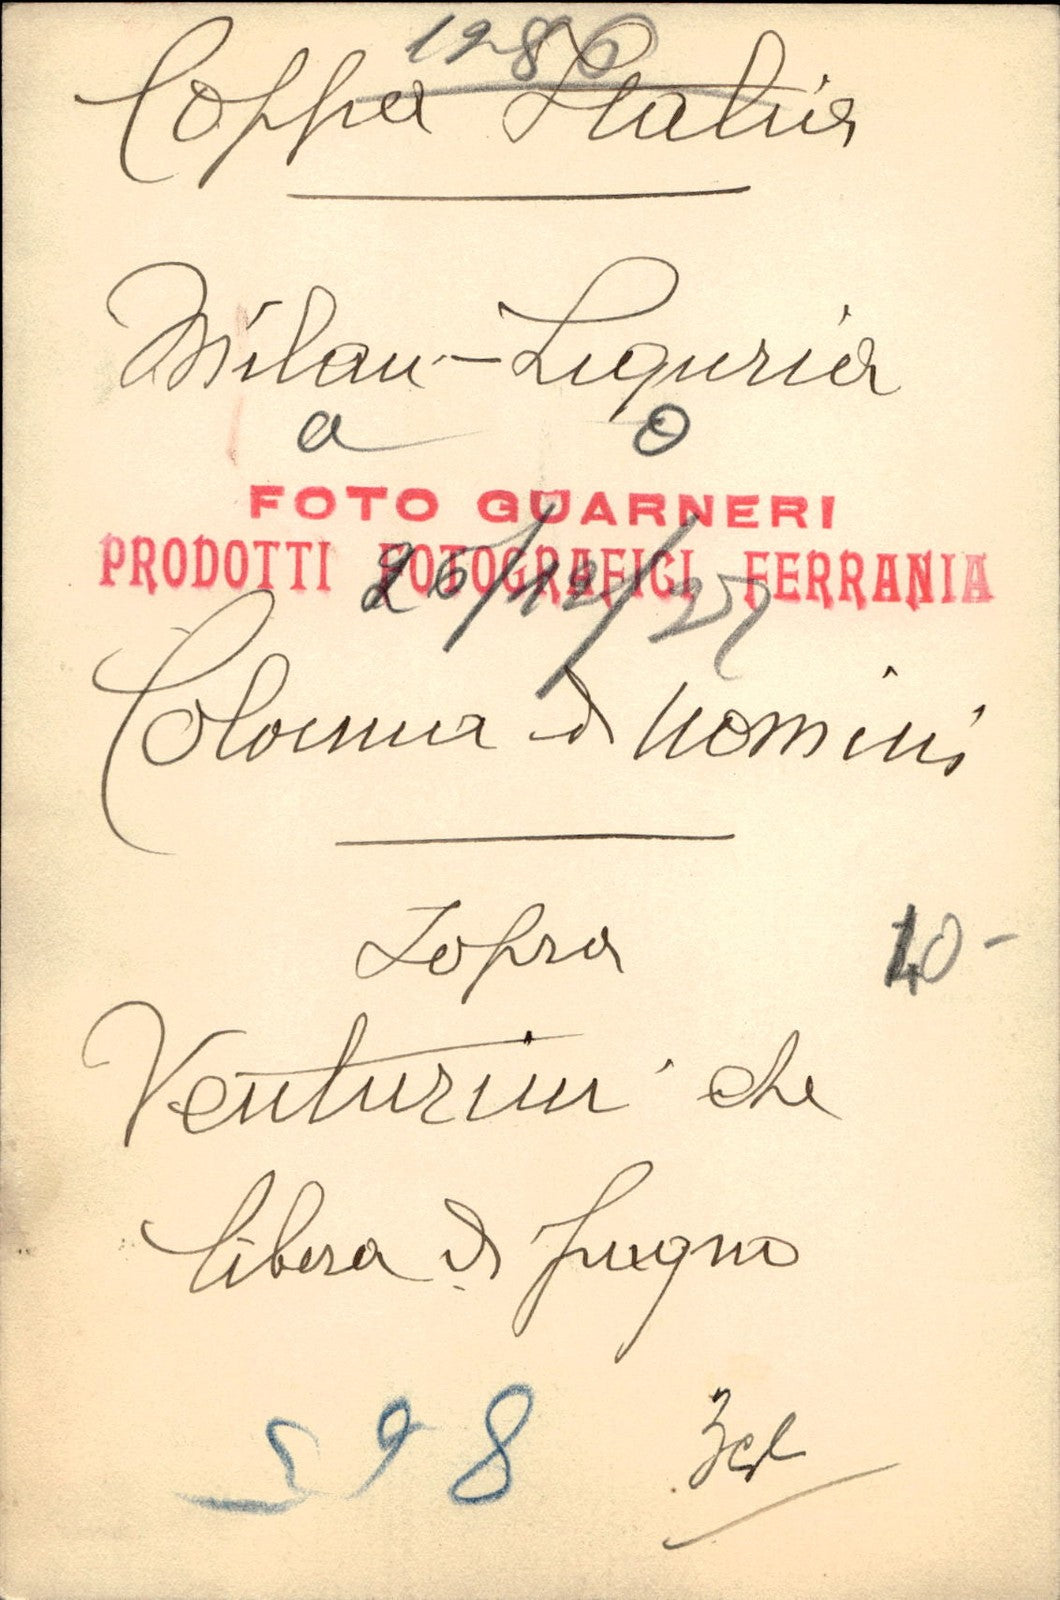 1286
Coppa Italia
Milan - Liguria
a o
FOTO GUARNERI
PRODOTTI FOTOGRAFICI FERRANIA
26/12/37
Colonna d uomini
Sopra
10 -
Venturini che
libera di pugno
598
3 cl